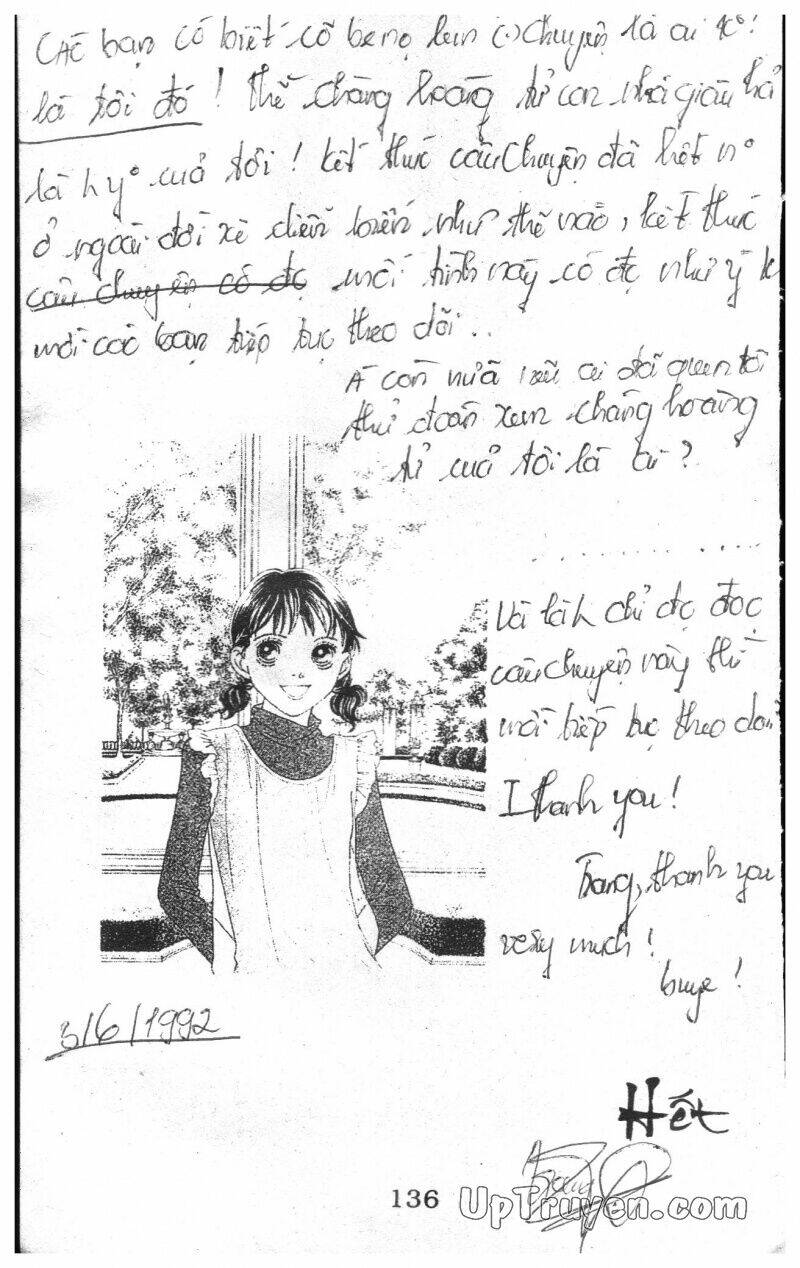 CÁC bạn có biết cô bé nọ (.) chuyện là ai kº!
là tôi đó! thế chàng hoàng tử con nhà giàu
là hyº cuả tôi! kết thúc câu chuyện đã hết nº
ở ngoài đời diễn biến như thế nào, kết thúc
câu chuyện có đc mối tình này có đc như ý k
mời các bạn tiếp tục theo dõi..
À còn nữa nếu ai đã quen tôi
thử đoán xem chàng hoàng
tử cuả tôi là ai?
Và chỉ đc đọc
câu chuyện này thì
mới tiếp tục theo doi
I thank you!
Trang, thank you
very much!
buye!
3/6/1992
Hết
136
UpTruyen.com